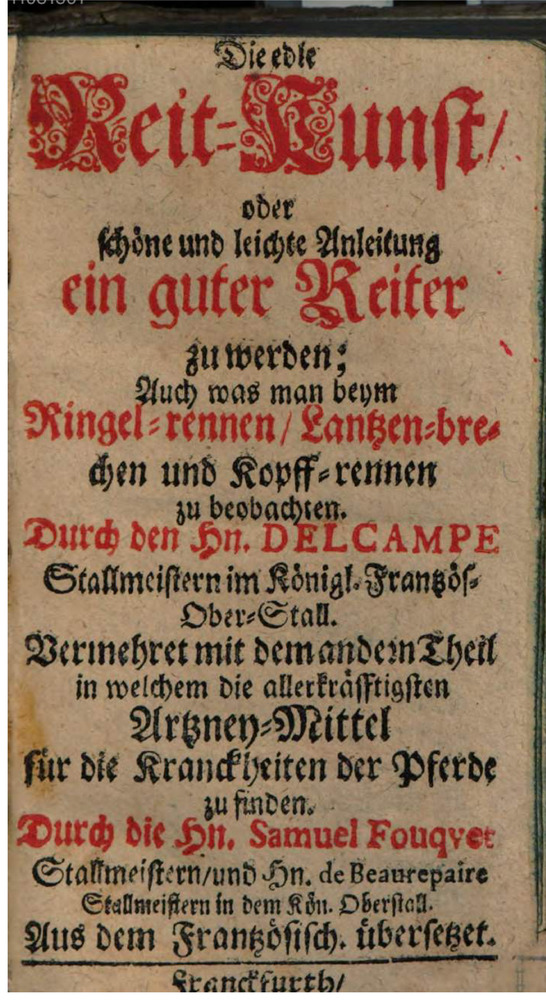 Die edle
Reit-Kunst/
oder
schöne und leichte Anleitung
ein guter Reiter
zu werden;
Auch was man beym
Ringel-rennen/Lantzen-bre-
chen und Kopff-rennen
zu beobachten.
Durch den Hn. DELCAMPE
Stallmeistern im Königl. Frantzös-
Ober-Stall.
Vermehret mit dem andern Theil
in welchem die allerkräfftigsten
Artzney-Mittel
für die Kranckheiten der Pferde
zu finden.
Durch die Hn. Samuel Fouqvet
Stallmeistern/und Hn. de Beaurepaire
Stallmeistern in dem Kön. Oberstall.
Aus dem Frantzösisch. übersetzet.
Franckfurth/